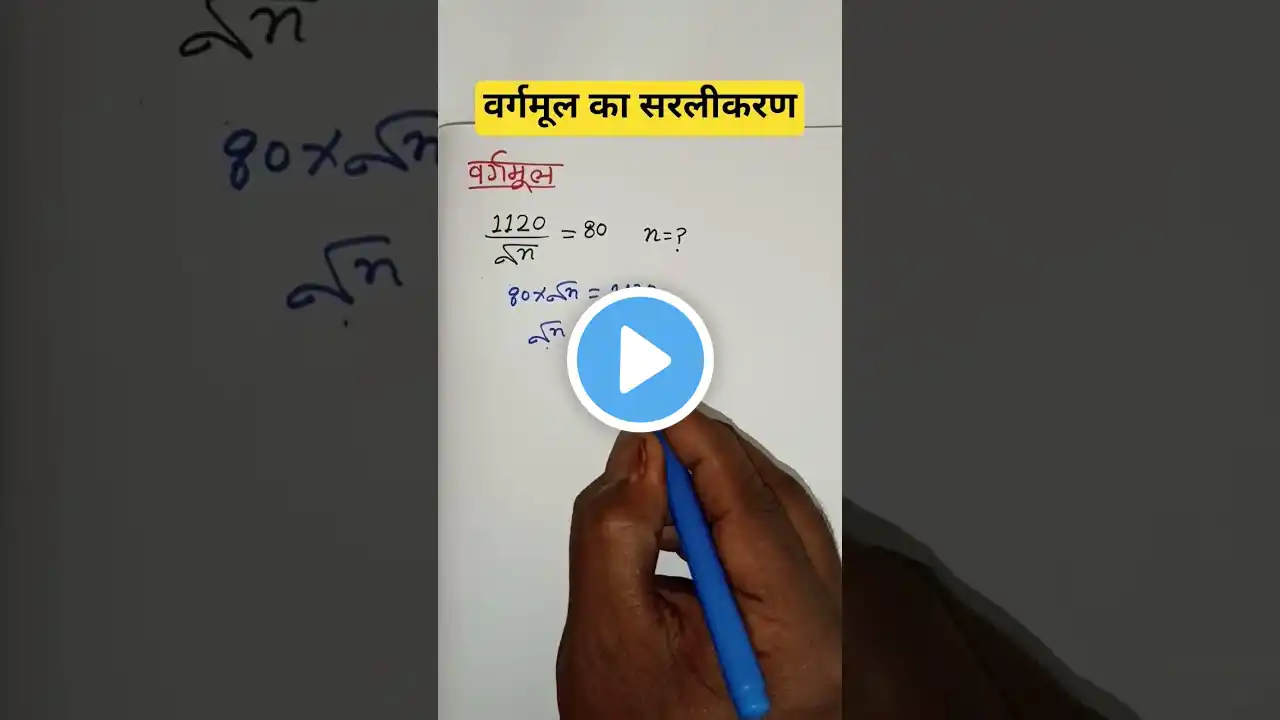 वर्गमूल का सरलीकरण
वर्गमूल
1120/√n = 80 n=?
80×√n =
√n